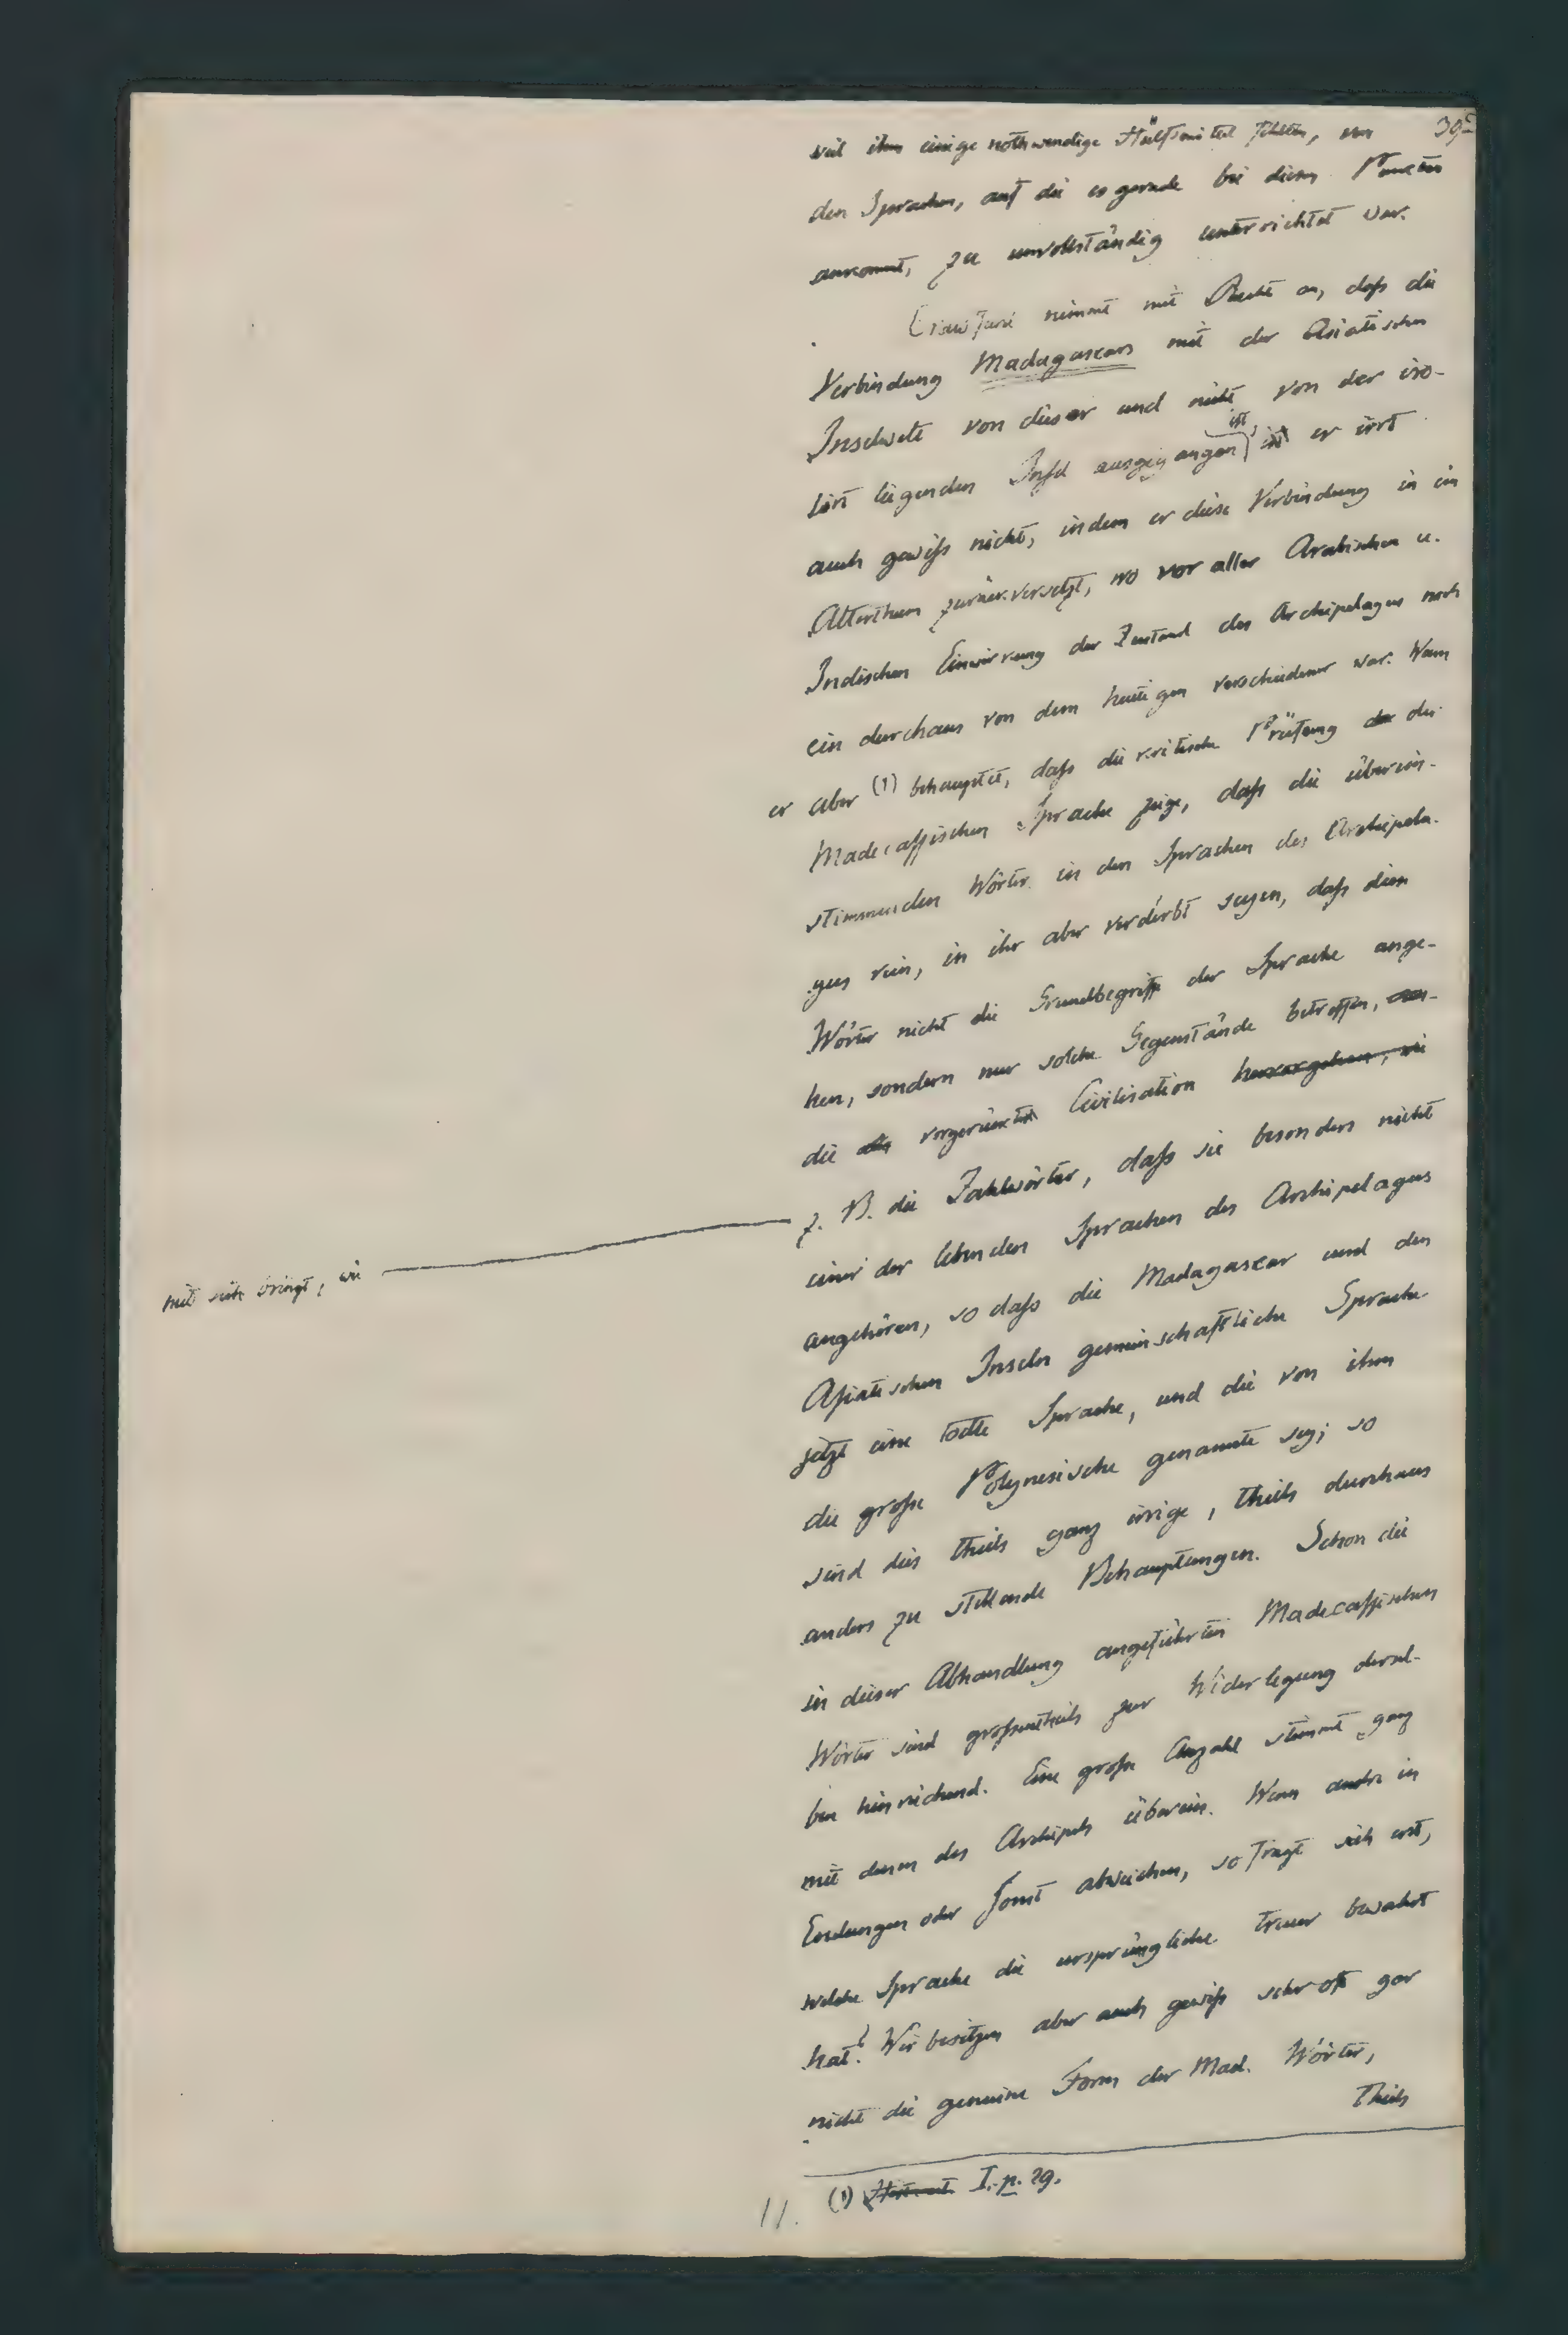 39.
weil ihm einige nothwendige Hülfsmittel fehlten, von
den Sprachen, auf die es gerade bei diesen Puncten
ankommt, zu unvollständig unterrichtet war.
Crawfurd nimmt mit Recht an, daß die
Verbindung Madagascars mit der Asiatischen
Inselwelt von dieser und nicht von der iso-
lirt liegenden Insel ausgegangen ist, er irrt
auch gewiß nicht, indem er diese Verbindung in ein
Alterthum zurückversetzt, wo vor aller Arabischen u.
Indischen Einwirkung der Zustand des Archipelagus noch
ein durchaus von dem heutigen verschiedener war. Wenn
er aber (1) behauptet, daß die kritische Prüfung der
Madecassischen Sprache zeige, daß die überein-
stimmenden Wörter in den Sprachen des Archipela-
gus rein, in ihr aber verderbt seyen, daß diese
Wörter nicht die Grundbegriffe der Sprache ange-
hen, sondern nur solche Gegenstände betreffen,
die vorgerückte Civilisation hervorgehen, wie
mit sich bringt, wie
z. B. die Zahlwörter, daß sie besonders nicht
einer der lebenden Sprachen des Archipelagus
angehören, so daß die Madagascar und den
Asiatischen Inseln gemeinschaftliche Sprache
jetzt eine todte Sprache, und die von ihm
die große Polynesische genannte sey; so
sind dies theils ganz irrige, theils durchaus
anders zu stellende Behauptungen. Schon die
in dieser Abhandlung angeführten Madecassischen
Wörter sind großentheils zur Widerlegung dersel-
ben hinreichend. Eine große Anzahl stimmt ganz
mit denen des Archipels überein. Wenn andre in
Endungen oder sonst abweichen, so fragt sich erst,
welche Sprache die ursprüngliche treuer bewahrt
hat? Wir besitzen aber auch gewiß sehr oft gar
nicht die genuine Form der Mad. Wörter,
theils
(1) I. p. 29.
11.